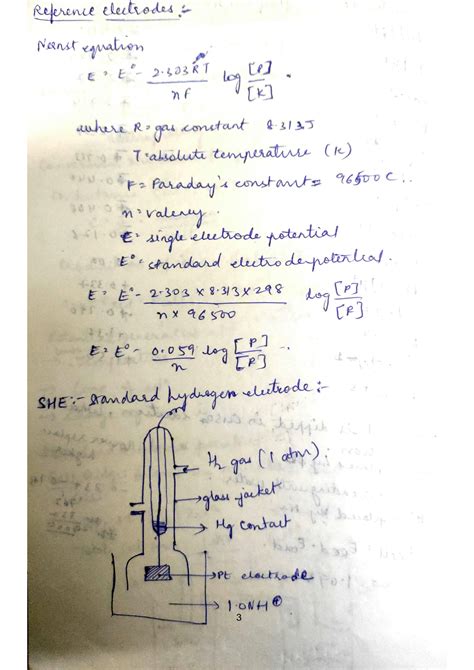 Reference electrodes :-
Nernst equation
E = E° - 2.303RT / nF log [P] / [R] .
where R = gas constant 8.313J
T = absolute temperature (K)
F = Faraday's constant = 96500 C..
n = valency.
E = single electrode potential
E° = standard electrode potential.
E = E° - 2.303 × 8.313 × 298 / n × 96500 log [P] / [R]
E = E° - 0.059 / n log [P] / [R] -.
SHE :- Standard hydrogen electrode :-
H2 gas (1 atm).
glass jacket
Hg contact
Pt electrode
1.0N H⊕
3